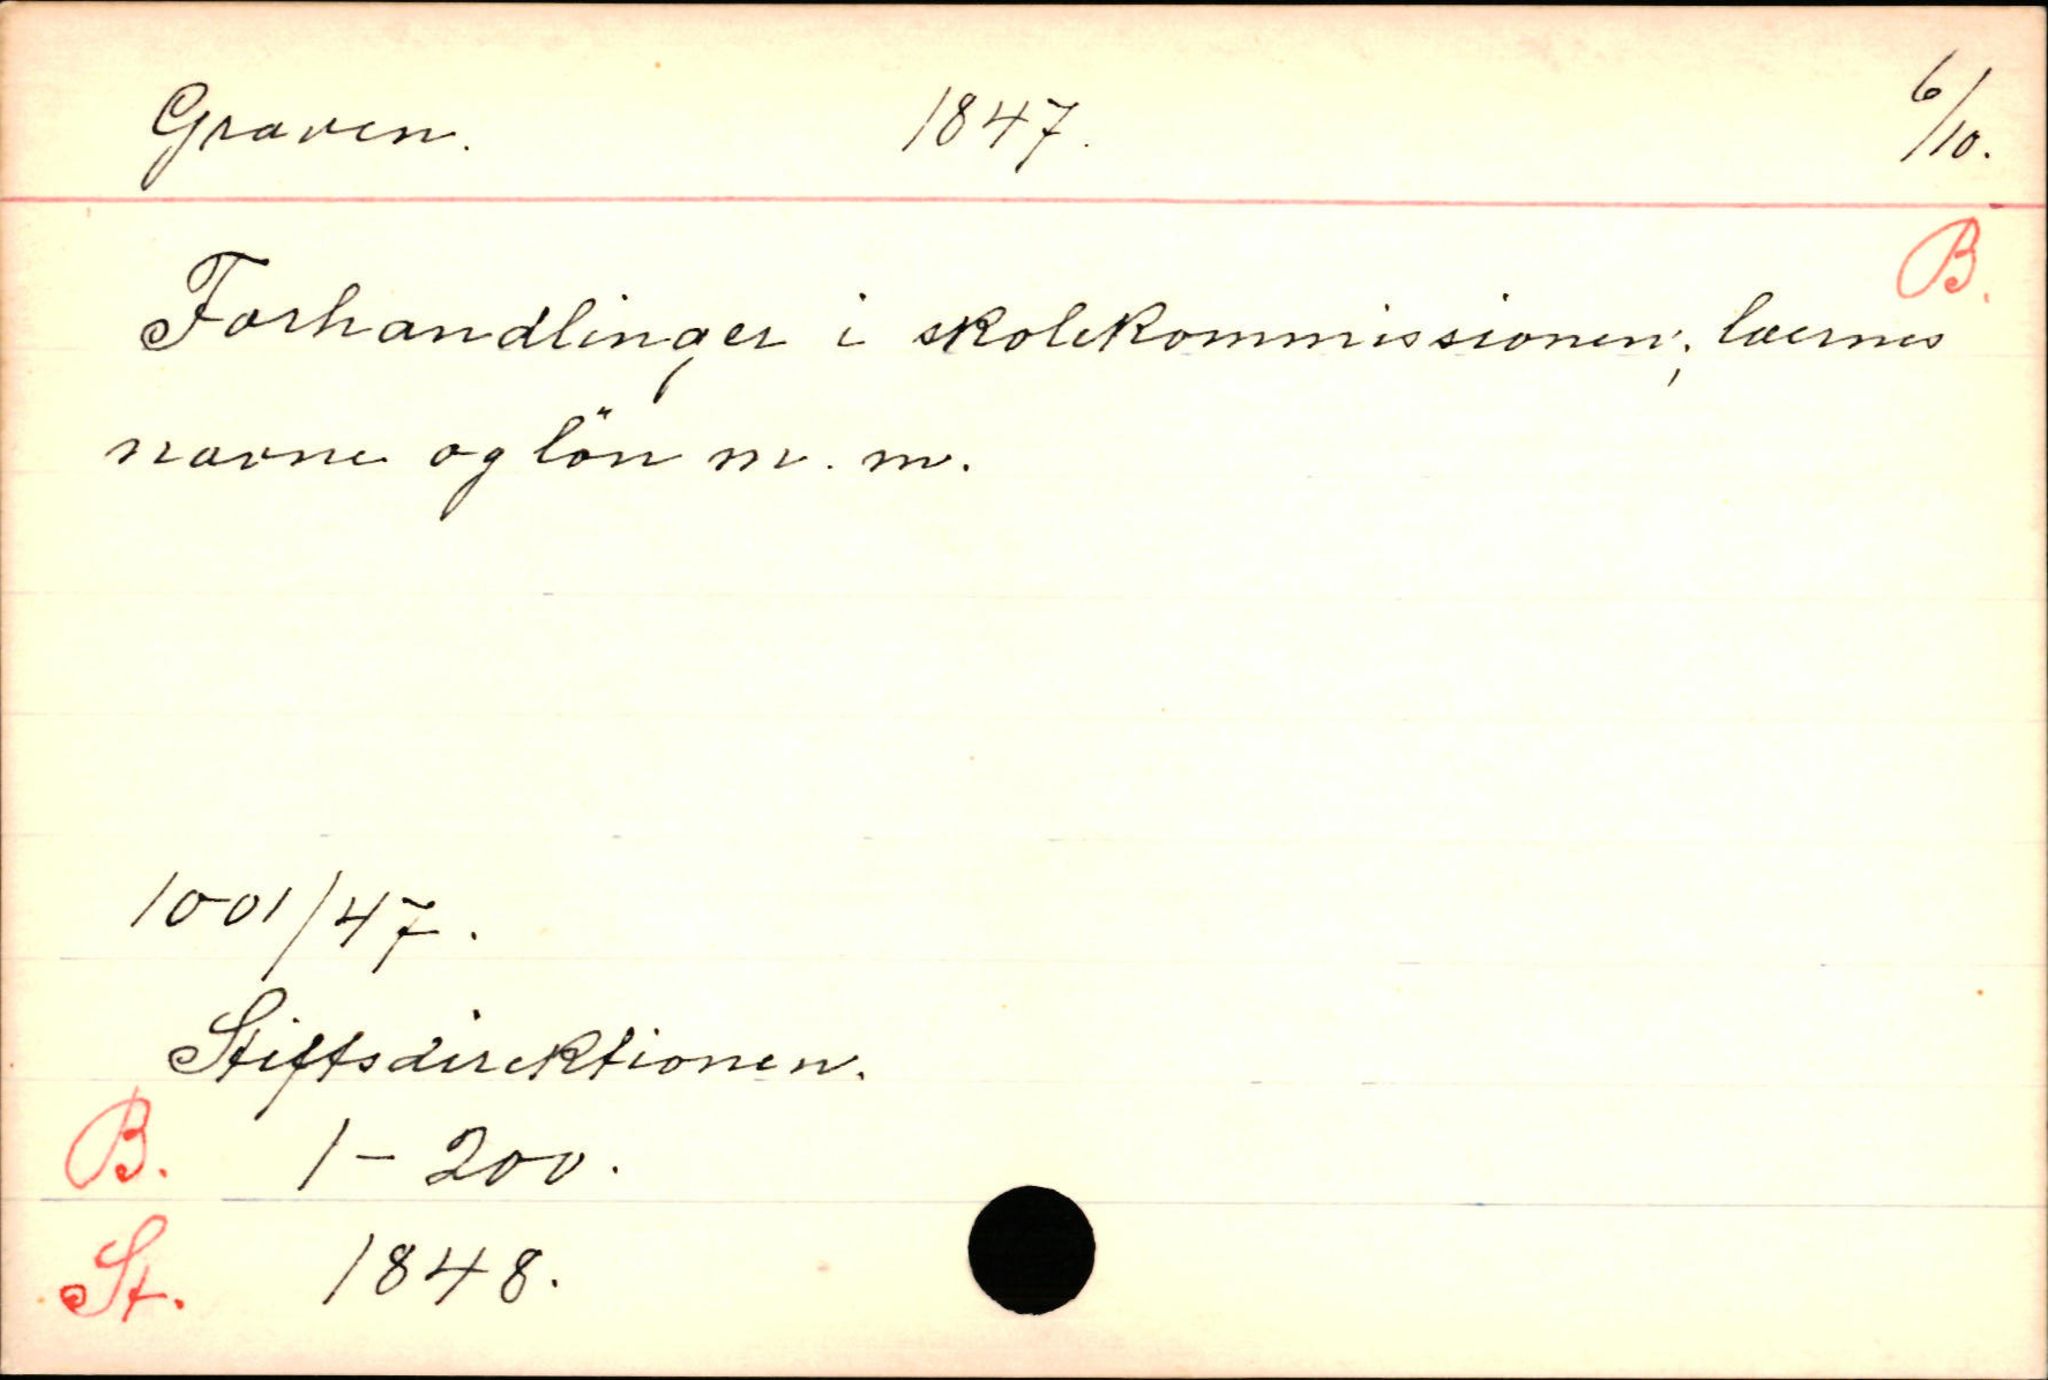 Graven. 1847. 6/10.
B.
Forhandlinger i skolekommissionen; lærnes
navne og lön m. m.
1001/47.
Stiftsdirektionen.
B. 1 - 200.
St. 1848.